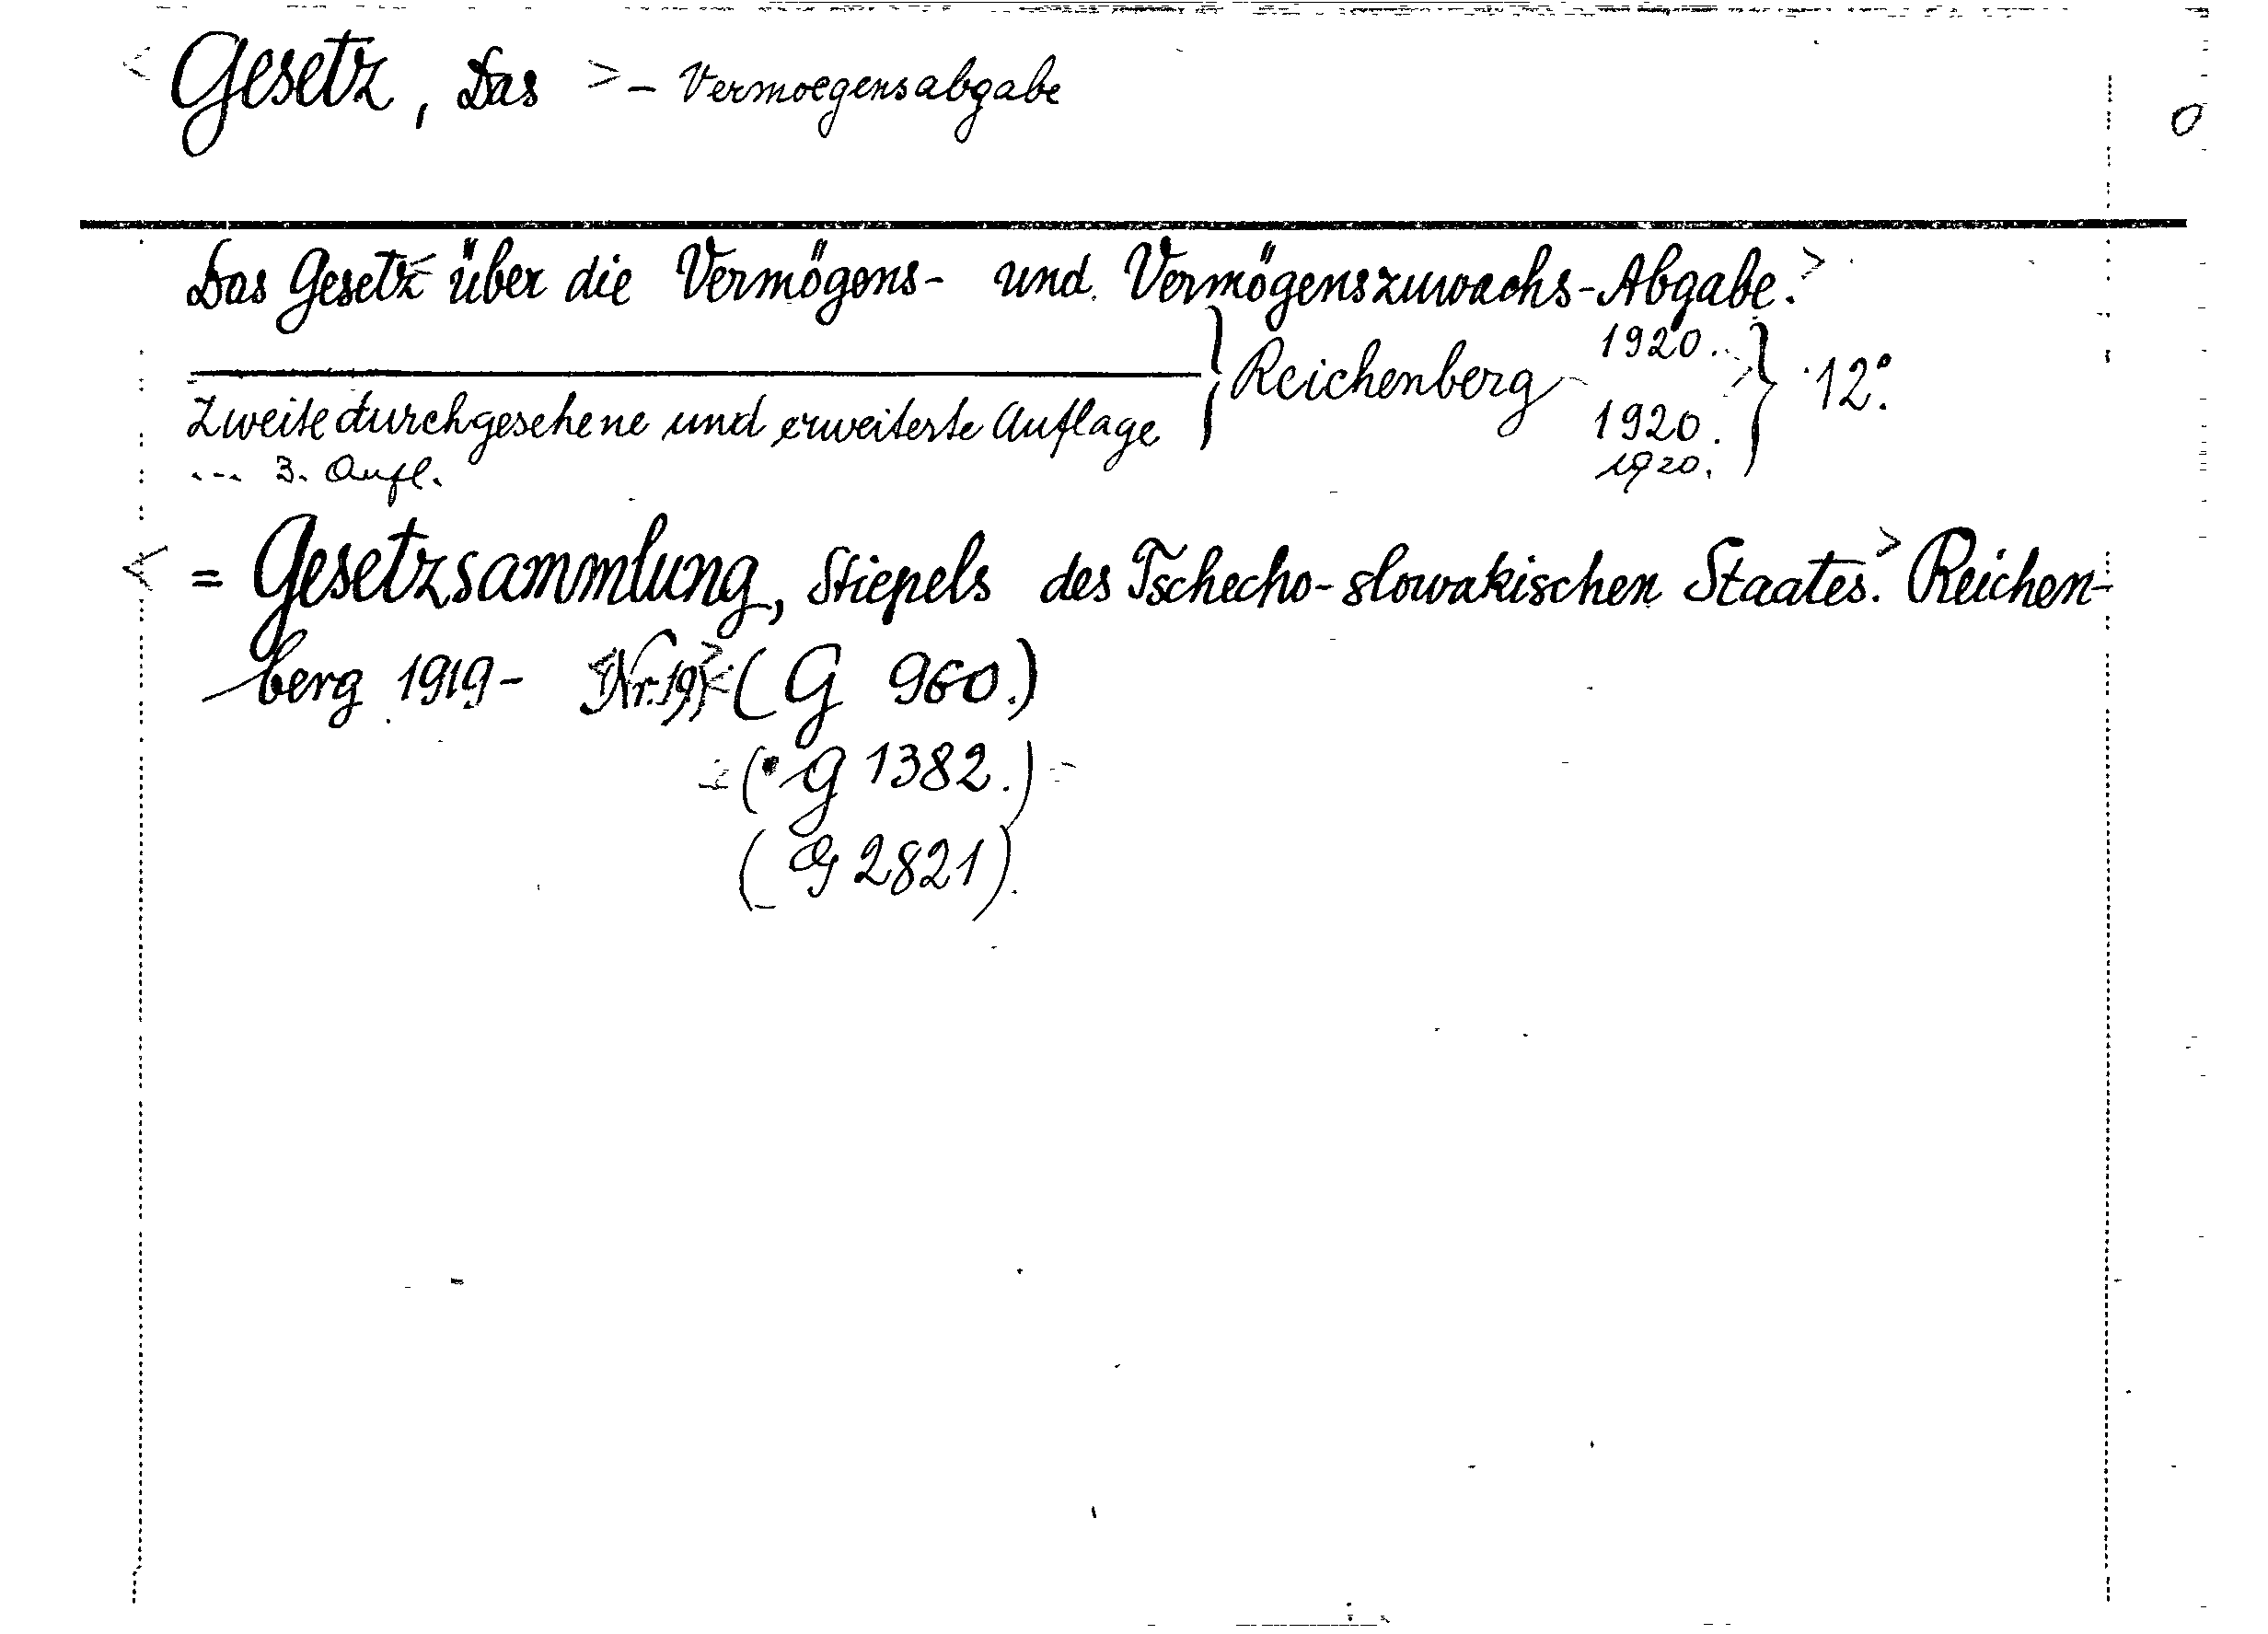 < Gesetz, Das > - Vermoegensabgabe
0
Das Gesetz < über die Vermögens- und Vermögenszuwachs-Abgabe. >
1920.
} Reichenberg } 12°.
Zweite durchgesehene und erweiterte Auflage 1920.
--- 3. Aufl. 1920.
< = Gesetzsammlung, Stiepels des Tschecho-slowakischen Staates. > Reichen-
berg 1919- <Nr. 19> (G 960.)
(• G 1382.)
(G 2821).